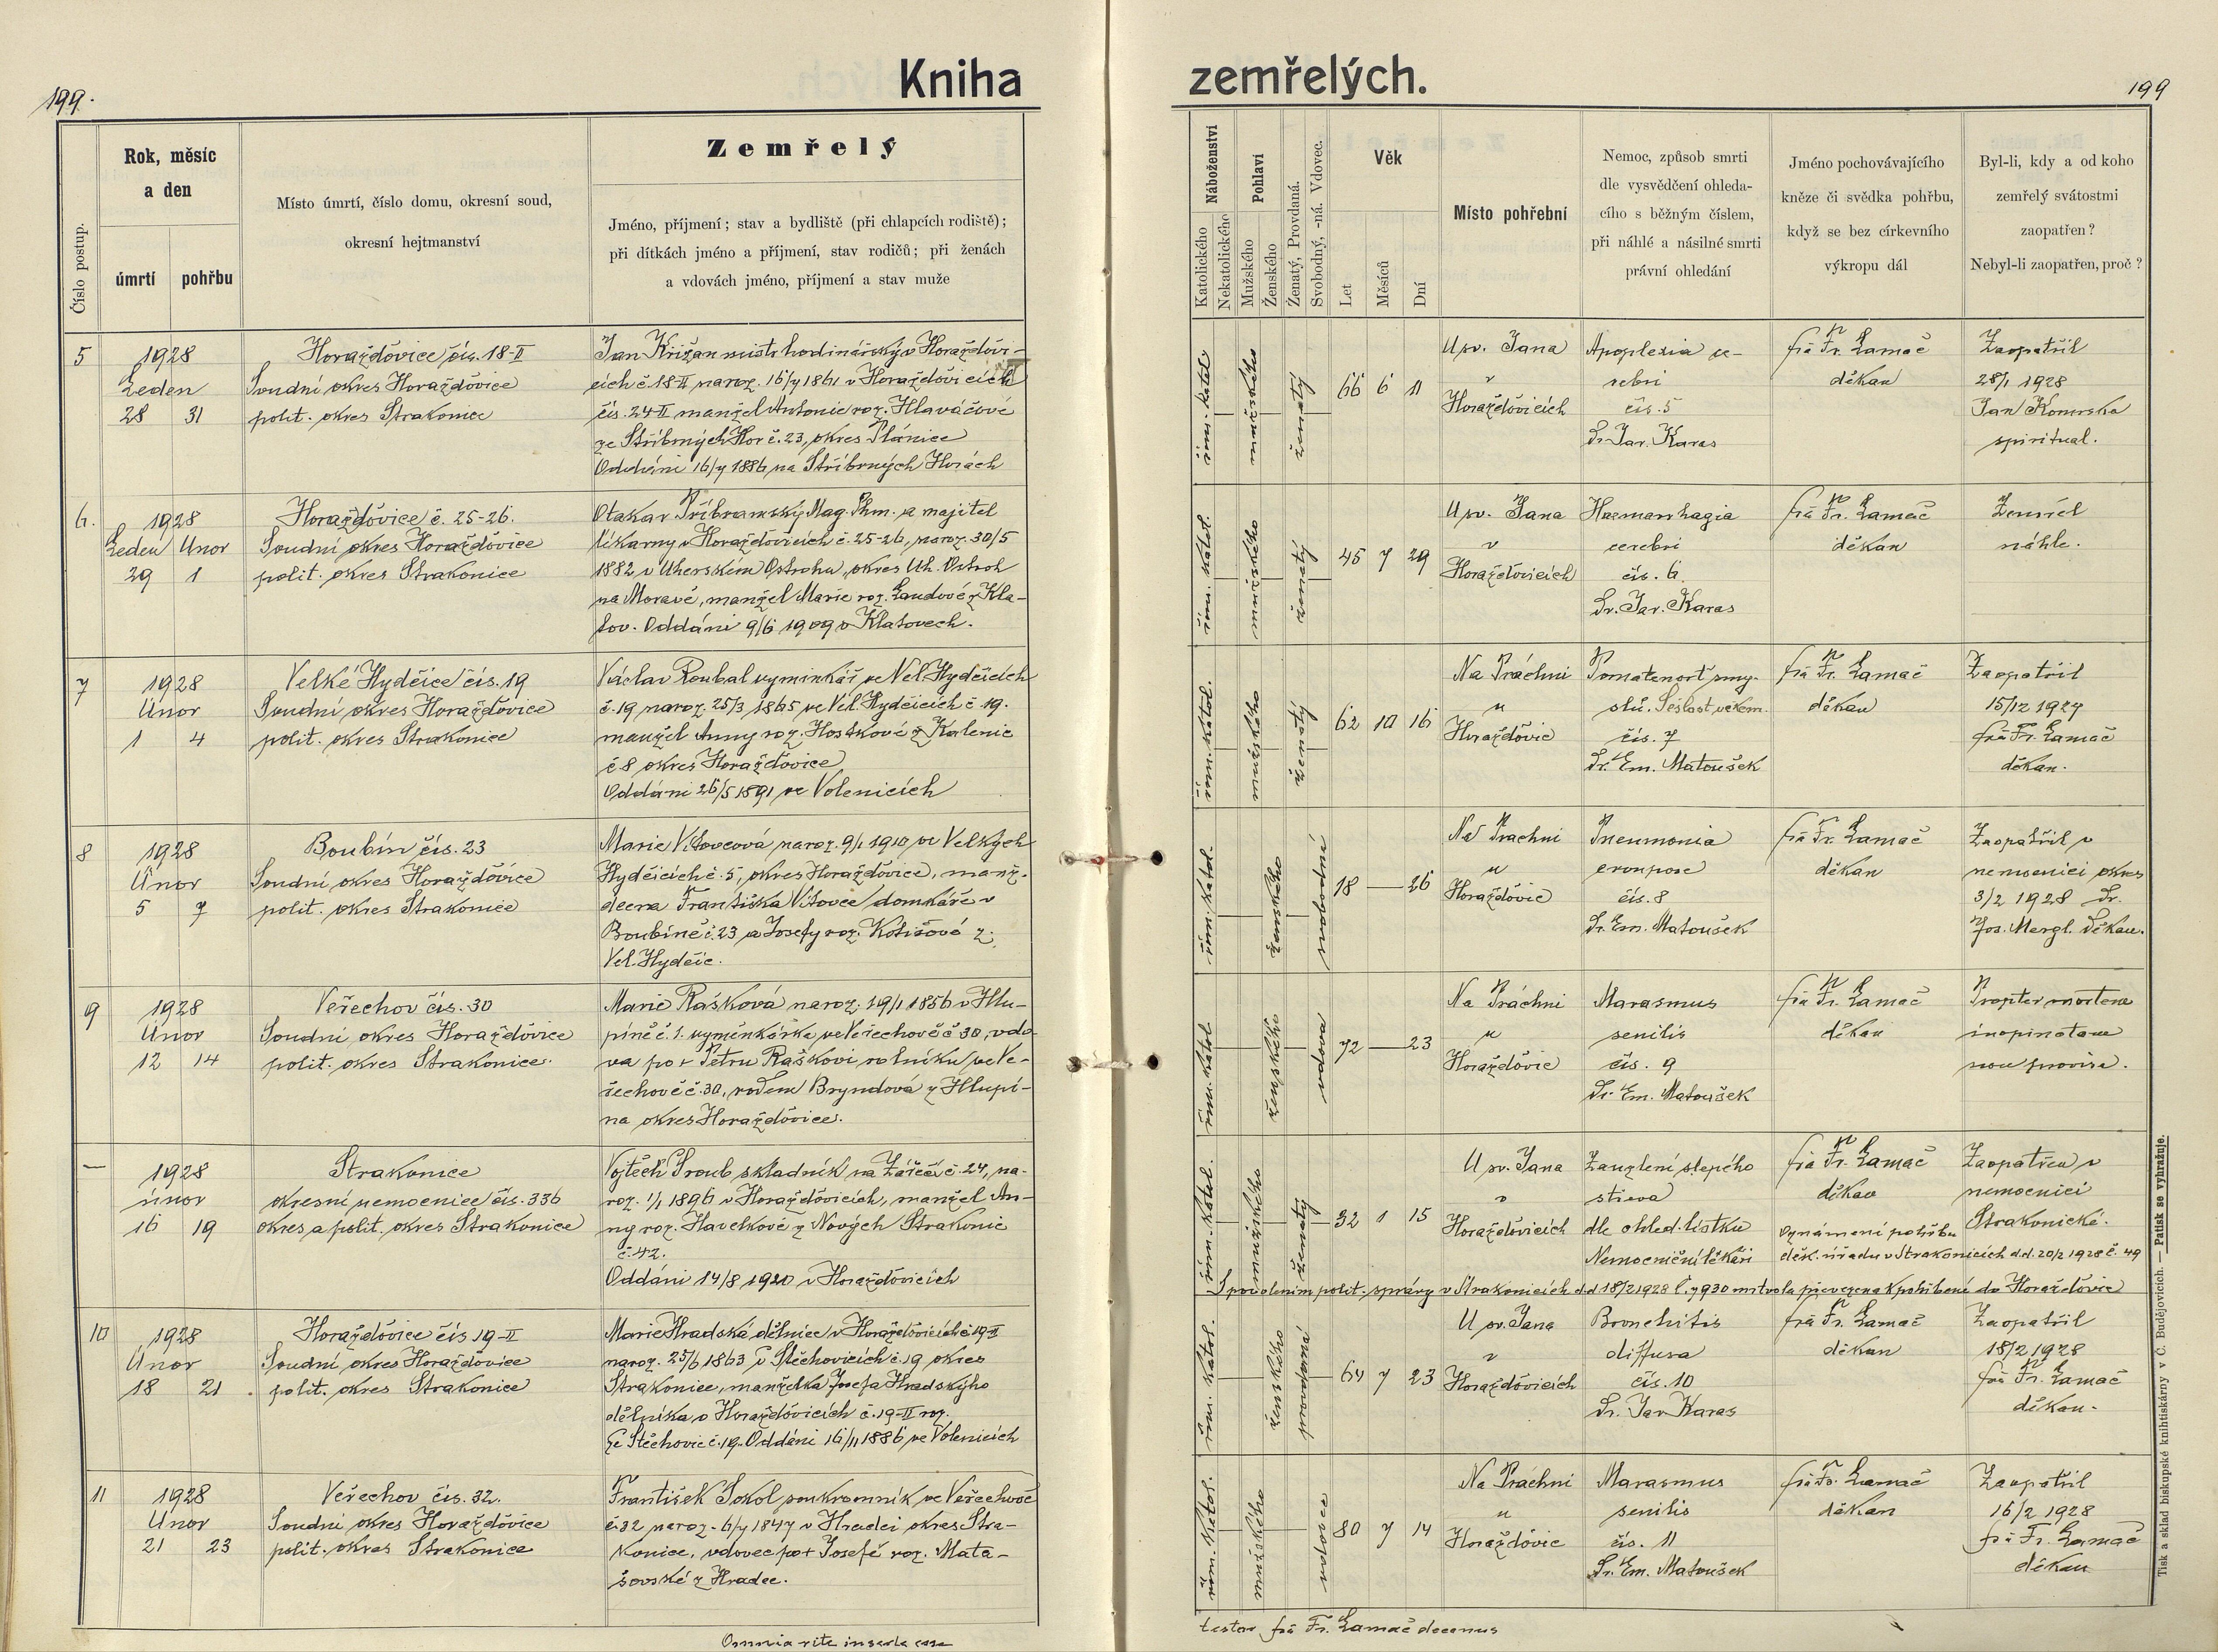 Kniha
199.
Číslo postup.
Rok, měsíc
a den
úmrtí
pohřbu
Místo úmrtí, číslo domu, okresní soud,
okresní hejtmanství
Zemřelý
Jméno, příjmení; stav a bydliště (při chlapcích rodiště);
při dítkách jméno a příjmení, stav rodičů; při ženách
a vdovách jméno, příjmení a stav muže
5
1928
Leden
28 31
Horažďovice čís. 18-II
Soudní okres Horažďovice
polit. okres Strakonice
Jan Križan mistr hodinářský v Horažďovi-
cích č 18 II naroz. 16/7 1861 v Horažďovicích
čís. 24 II manžel Antonie roz. Hlaváčové
ze Stříbrných Hor č. 23, okres Plánice
Oddáni 16/7 1886 na Stříbrných Horách
6.
1928
Leden Únor
29 1
Horažďovice č. 25-26.
Soudní okres Horažďovice
polit. okres Strakonice
Otakar Příbramský Mag. Phm. a majitel
lékarny v Horažďovicích č. 25-26, naroz. 30/5
1882 v Uherském Ostrohu, okres Uh. Ostroh
na Moravě, manžel Marie roz. Landové z Kla-
tov. Oddáni 9/6 1909 v Klatovech.
7
1928
Únor
1 4
Velké Hydčice čís. 19
Soudní okres Horažďovice
polit. okres Strakonice
Václav Roubal vyminkář ve Vel. Hydčicích
č. 19 naroz. 25/3 1865 ve Vel. Hydčicích č. 19.
manžel Anny roz. Hoskové z Kalenic
č. 8 okres Horažďovice
Oddáni 26/5 1891 ve Volenicích
8
1928
Únor
5 7
Boubín čís. 23
Soudní okres Horažďovice
polit. okres Strakonice
Marie Vítovcová naroz. 9/1 1910 ve Velkých
Hydčicích č. 5, okres Horažďovice, manž.
dcera Františka Vítovce domkáře v
Boubíně č. 23 a Josefy roz. Kotišové z
Vel. Hydčic.
9
1928
Únor
12 14
Veřechov čís. 30
Soudní okres Horažďovice
polit. okres Strakonice.
Marie Rašková naroz. 19/1 1856 v Hlu-
píně č. 1. vyminkářka ve Veřechově č 30, vdo-
va po + Petru Raškovi rolníku ve Ve-
řechově č. 30, rodem Bryndová z Hlupí-
na okres Horažďovice.
—
1928
únor
16 19
Strakonice
okresní nemocnice čís. 336
okres a polit. okres Strakonice
Vojtěch Šroub skladník na Zářečí č. 24, na-
roz. 1/1 1896 v Horažďovicích, manžel An-
ny roz. Havelkové z Nových Strakonic
č. 42.
Oddáni 14/8 1920 v Horažďovicích
10
1928
Únor
18 21
Horažďovice čís 19-II
Soudní okres Horažďovice
polit. okres Strakonice
Marie Hradská dělnice v Horažďovicích č 19-II
naroz. 25/6 1863 v Štěchovicích č. 19 okres
Strakonice, manželka Josefa Hradskýho
dělníka v Horažďovicích č. 19-II roz.
Ze Štěchovic č. 19. Oddáni 16/11 1886 ve Volenicích
11
1928
Únor
21 23
Veřechov čís. 32.
Soudní okres Horažďovice
polit. okres Strakonice
František Sokol soukromník ve Veřechově
č. 32 naroz. 6/7 1847 v Hradci okres Stra-
konice, vdovec po + Josefě roz. Mata-
šovské z Hradce.
Omnia rite inserta esse
zemřelých.
199
Náboženství
Katolického
Nekatolického
Pohlaví
Mužského
Ženského
Ženatý, Provdaná.
Svobodný, -ná. Vdovec.
Věk
Let
Měsíců
Dní
Místo pohřební
Nemoc, způsob smrti
dle vysvědčení ohleda-
cího s běžným číslem,
při náhlé a násilné smrti
právní ohledání
Jméno pochovávajícího
kněze či svědka pohřbu,
když se bez církevního
výkropu dál
Byl-li, kdy a od koho
zemřelý svátostmi
zaopatřen?
Nebyl-li zaopatřen, proč?
řím. katol.
mužského
ženatý
66 6 11
U sv. Jana
v
Horažďovicích
Apoplexia ce-
rebri
čís. 5
Dr. Jar. Karas
frá Fr. Lamač
děkan
Zaopatřil
28/1 1928
Jan Komrska
spiritual.
řím. katol.
mužského
ženatý
45 7 29
U sv. Jana
v
Horažďovicích
Haemorrhagia
cerebri
čís. 6.
Dr. Jar. Karas
frá Fr. Lamač
děkan
Zemřel
náhle.
řím. katol.
mužského
ženatý
62 10 16
Na Práchni
u
Horažďovic
Pomatenost smy-
slů. Sešlost věkem.
čís. 7
Dr. Em. Matoušek
frá Fr. Lamač
děkan
Zaopatřil
15/12 1927
frá Fr. Lamač
děkan.
řím. katol.
ženského
svobodná
18 — 26
Na Prachni
u
Horažďovic
Pneumonia
crouposa
čís. 8
Dr. Em. Matoušek
frá Fr. Lamač
děkan
Zaopatřil v
nemocnici okres
3/2 1928 Dr.
Jos. Mergl. děkan.
řím. katol.
ženského
vdova
72 — 23
Na Práchni
u
Horažďovic
Marasmus
senilis
čís. 9
Dr. Em. Matoušek
frá Fr. Lamač
děkan
Propter mortem
inopinatam
non provisa.
řím. katol.
mužského
ženatý
32 1 15
U sv. Jana
v
Horažďovicích
Zauzlení slepého
střeva
dle ohled. lístku
Nemocniční lékaři
frá Fr. Lamač
děkan
Oznámení pohřbu
děk. úřadu v Strakonicích d.d. 20/2 1928 č. 49
Zaopatřen v
nemocnici
Strakonické.
S povolením polit. správy v Strakonicích d.d. 18/2 1928 č. 7930 mrtvola převezena k pohřbení do Horažďovic
řím. katol.
ženského
provdaná
64 7 23
U sv. Jana
v
Horažďovicích
Bronchitis
diffusa
čís. 10
Dr. Jar Karas
frá Fr. Lamač
děkan
Zaopatřil
18/2 1928
frá Fr. Lamač
děkan.
řím. katol.
mužského
vdovec
80 7 14
Na Práchni
u
Horažďovic
Marasmus
senilis
čís. 11
Dr. Em. Matoušek
frá Fr. Lamač
děkan
Zaopatřil
16/2 1928
frá Fr. Lamač
děkan
testor frá Fr. Lamač decanus
Tisk a sklad biskupské knihtiskárny v Č. Budějovicích. — Patisk se vyhražuje.